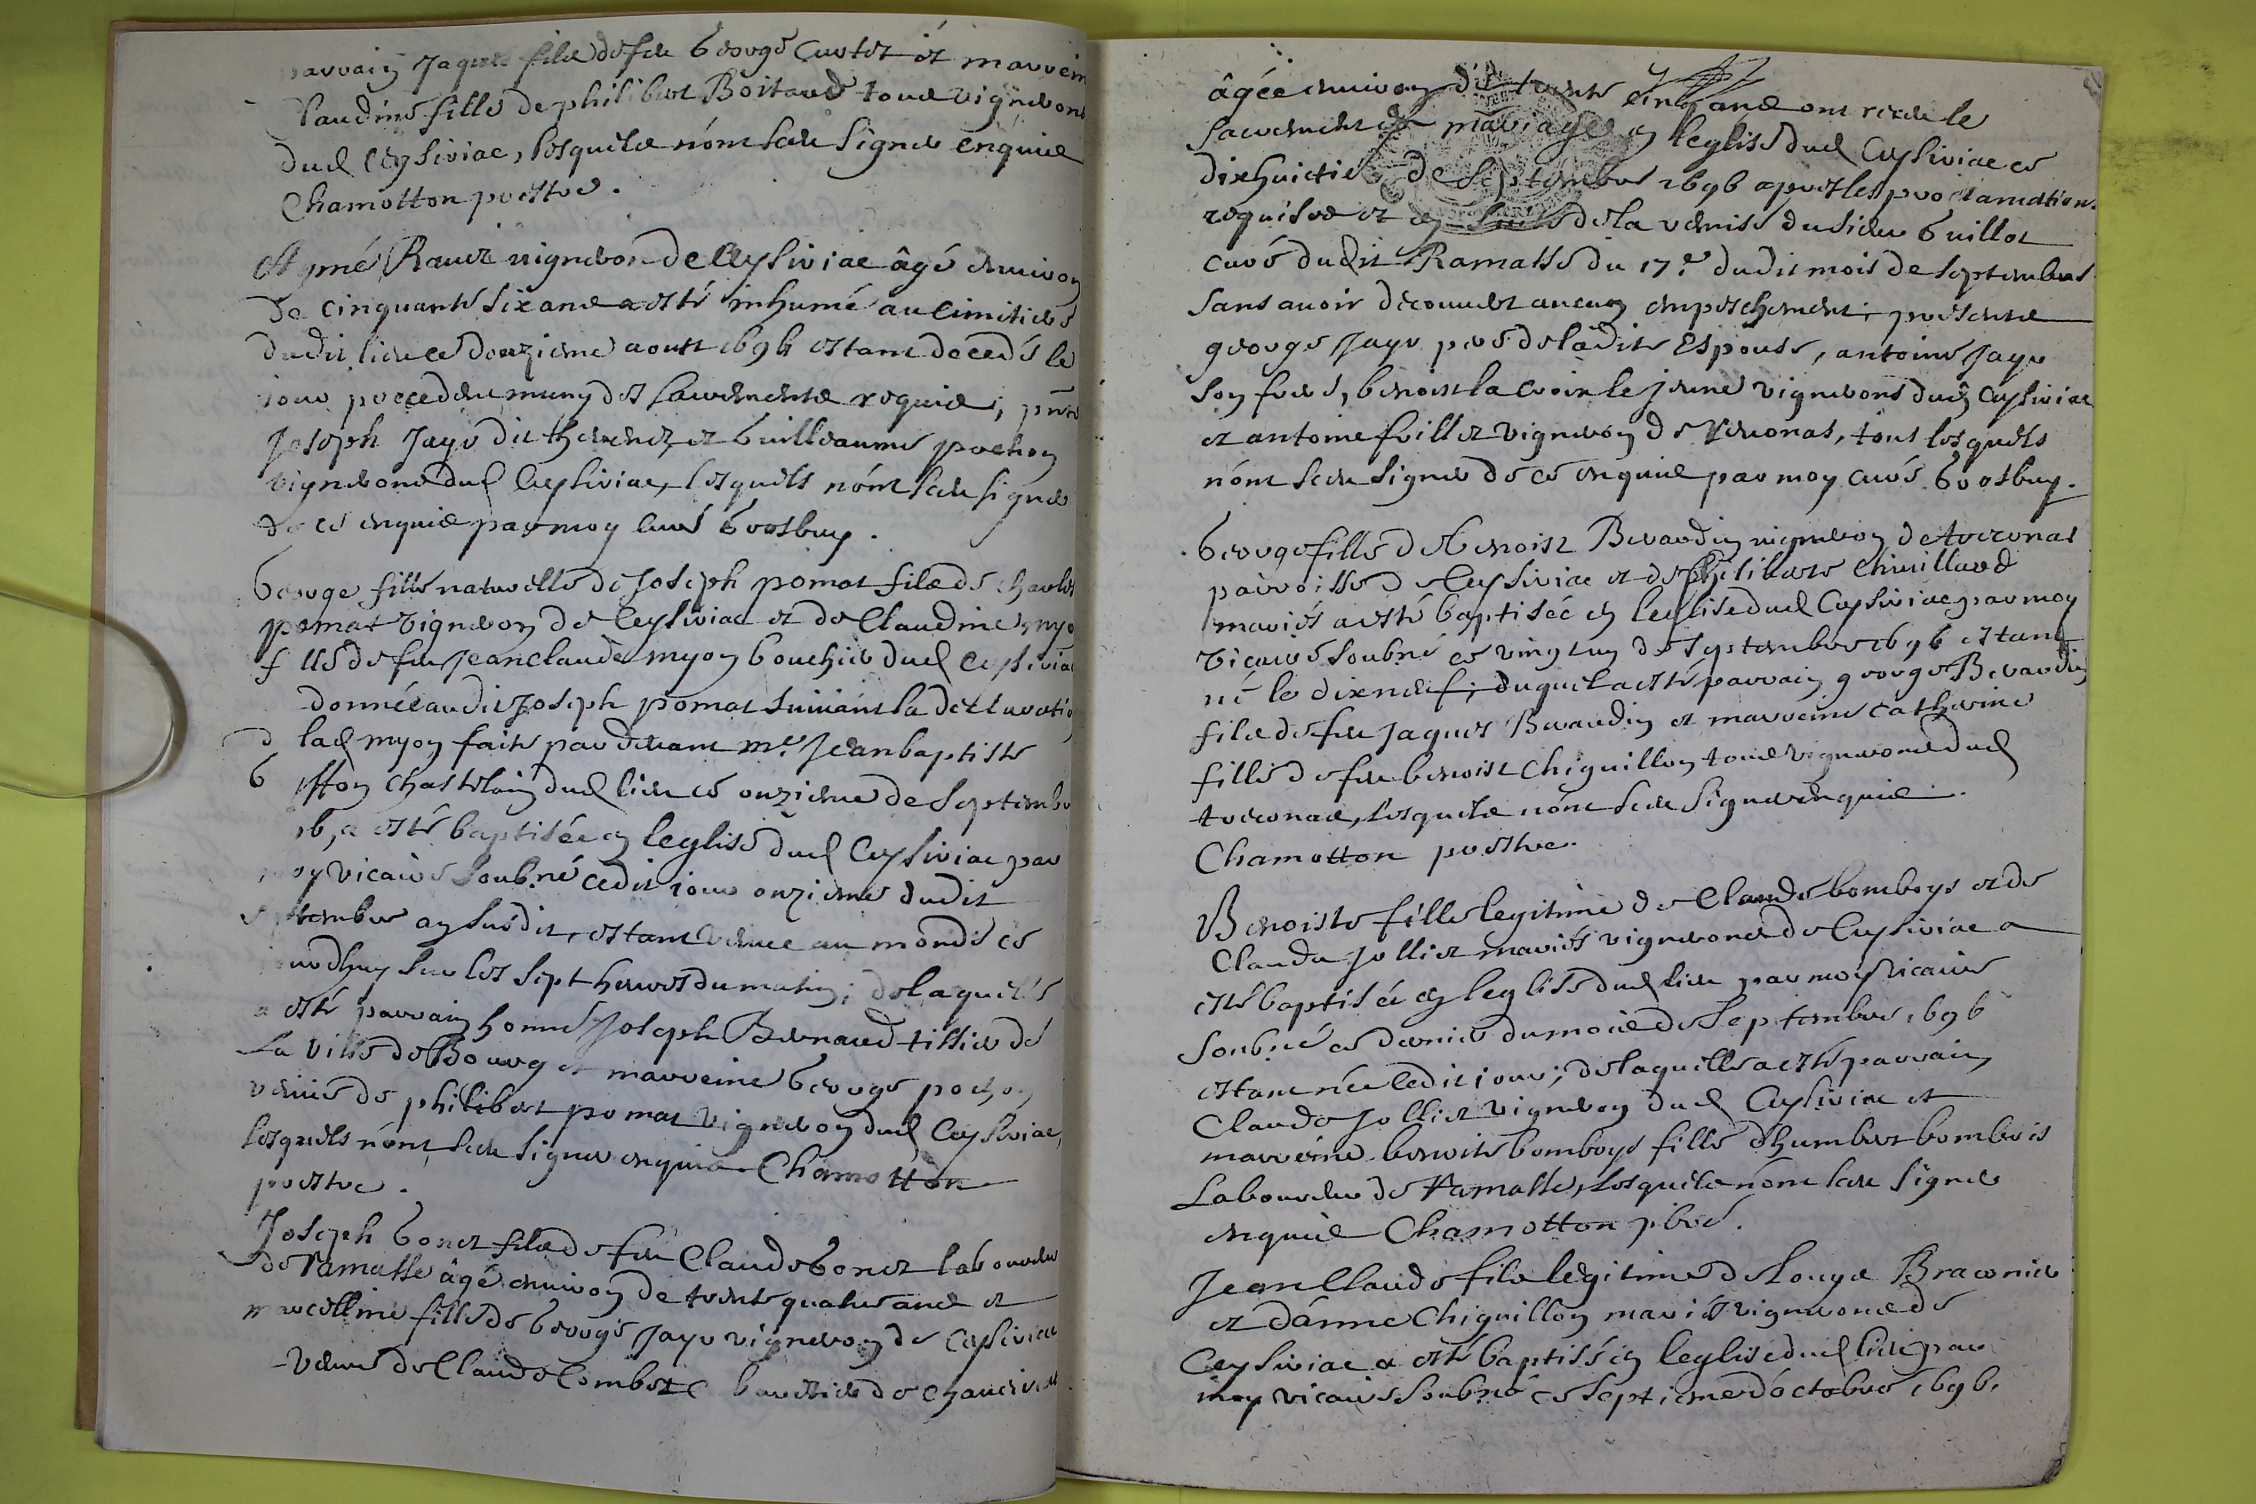 parrain Jaques fils de feu George Curtet et marreine
Claudine fille de philibert Boitard tous vignerons
dud Ceysiriac, lesquels nont sceu signer enquis
Chamotton prestre.
Aymé Ravet vigneron de Ceysiriac âgé environ
de cinquante six ans a esté inhumé au cimitiere
dudit lieu ce douzieme aoust 1696 estant decedé le
jour precedent muny des sacrements requis; pnts
Joseph Jayr dit et Guilleaume pochon
vignerons dud Ceysiriac, lesquels nont sceu signer
de ce enquis par moy curé Grosbuy.
George fille naturelle de Joseph pomat fils de charles
pomat vigneron de Ceysiriac et de Claudine myon
fille de feu Jeanclaude myon bouchier dud Ceysiriac
donnée audit Joseph pomat suivant la declaration
d lad myon faite par devant me Jeanbaptiste
chastelain dud lieu ce onzieme de Septembre
96, a esté baptisée en leglise dud Ceysiriac par
moy vicaire soubné cedit jour onzieme dudit
septembre an susdit, estant venue au monde ce
jourdhuy sur les sept heures du matin; de laquelle
a esté parrain honne Joseph Bernard tissier de
La ville de Bourg et marreine George pochon
veuve de philibert pomat vigneron dud Ceysiriac,
lesquels nont sceu signer enquis Chamotton
prestre.
Joseph Gonet fils de feu Claude Gonet laboureur
de Ramasse âgé environ de trente quatre ans et
marcelline fille de George Jayr vigneron de Ceysiriac
veuve de Claude Combet de
âgée environ de trente cinq ans ont receu le
sacrement de mariage en leglise dud Ceysiriac ce
dixhuictie de Septembre 1696 apres les proclamations
requises et en suite de la remise du sieur Guillot
curé dudit Ramasse du 17e dudit mois de septembre
sans avoir decouvert aucun empeschement; presents
george Jayr pere de ladite Espouse, antoine Jayr
son frere, benoist lacroix le jeune vignerons dud Ceysiriac
et antoine fuillet vigneron de Revonas, tous lesquels
nont sceu signer de ce enquis par moy curé Grosbuy.
George fille de Benoist Berardin vigneron de treconas
parroisse de Ceysiriac et de philiberte Chivillard
mariés a esté baptisée en leglise dud Ceysiriac par moy
vicaire soubné ce vingt un de Septembre 1696 estant
né le dixneuf; duquel a esté parrain george Berardin
fils de feu Jaques Berardin et marreine Catherine
fille de feu benoist Chiquillon tous vignerons dud
treconas, lesquels nont sceu signer enquis.
Chamotton prestre.
Benoiste fille legitime de Claude bomboys et de
Clauda Jolliet mariés vignerons de Ceysiriac a
esté baptisée en leglise dud lieu par moy vicaire
soubné ce dernier du mois de Septembre 1696
estant née ledit jour; de laquelle a esté parrain
Claude Jolliet vigneron dud Ceysiriac et
marreine benoite bomboys fille dhumbert bombois
Laboureur de Ramasse, lesquels nont sceu signer
enquis Chamotton pbre.
JeanClaude fils legitime de Louys
et danne Chiquillon mariés vignerons de
Ceysiriac a esté baptisé en leglise dud lieu par
moy vicaire soubné ce septieme doctobre 1696.